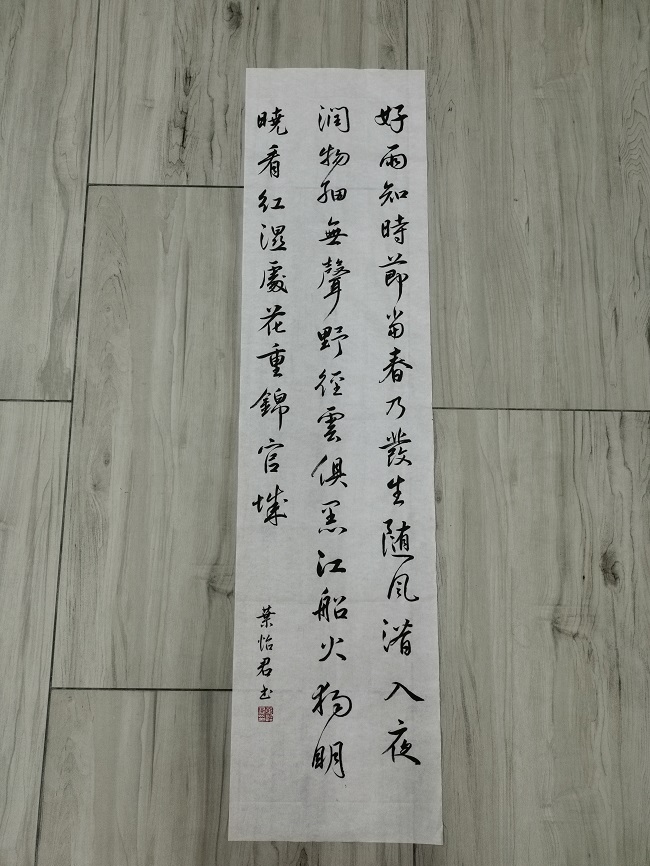 好雨知時節當春乃發生随風潛入夜
潤物細無聲野徑雲俱黑江船火獨明
曉看紅濕處花重錦官城
葉怡君书